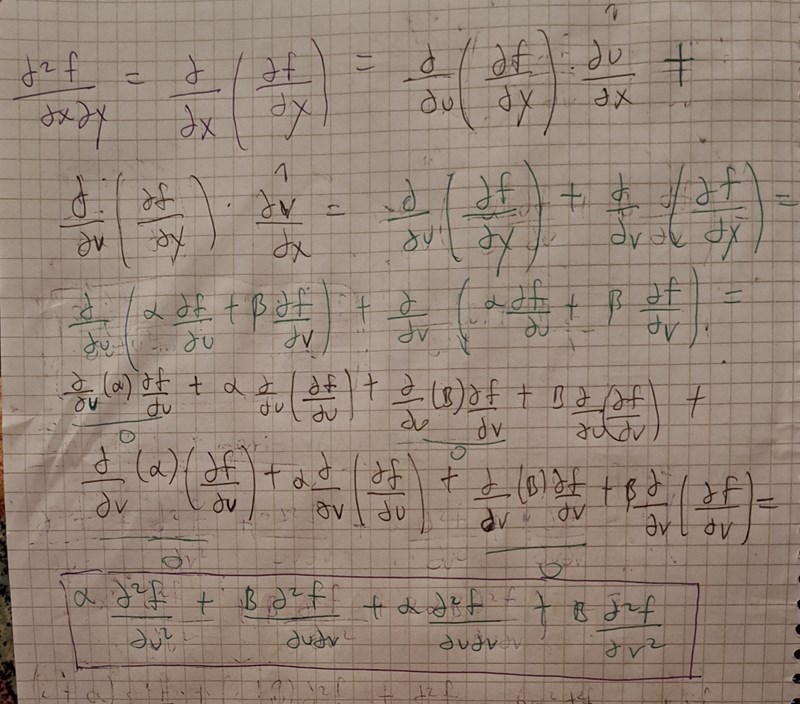 ∂²f/∂x∂y = ∂/∂x (∂f/∂y) = ∂/∂u (∂f/∂y) ∂u/∂x 1 +
∂/∂v (∂f/∂y) · ∂v/∂x 1 = ∂/∂u (∂f/∂y) + ∂/∂v (∂f/∂y) =
∂/∂u (α ∂f/∂u + β ∂f/∂v) + ∂/∂v (α ∂f/∂u + β ∂f/∂v) =
∂/∂u (α) ∂f/∂u + α ∂/∂u (∂f/∂u) + ∂/∂u (β) ∂f/∂v + β ∂/∂u (∂f/∂v) +
0 0
∂/∂v (α) (∂f/∂u) + α ∂/∂v (∂f/∂u) + ∂/∂v (β) ∂f/∂v + β ∂/∂v (∂f/∂v) =
0 0
α ∂²f/∂u² + β ∂²f/∂u∂v + α ∂²f/∂u∂v + β ∂²f/∂v²